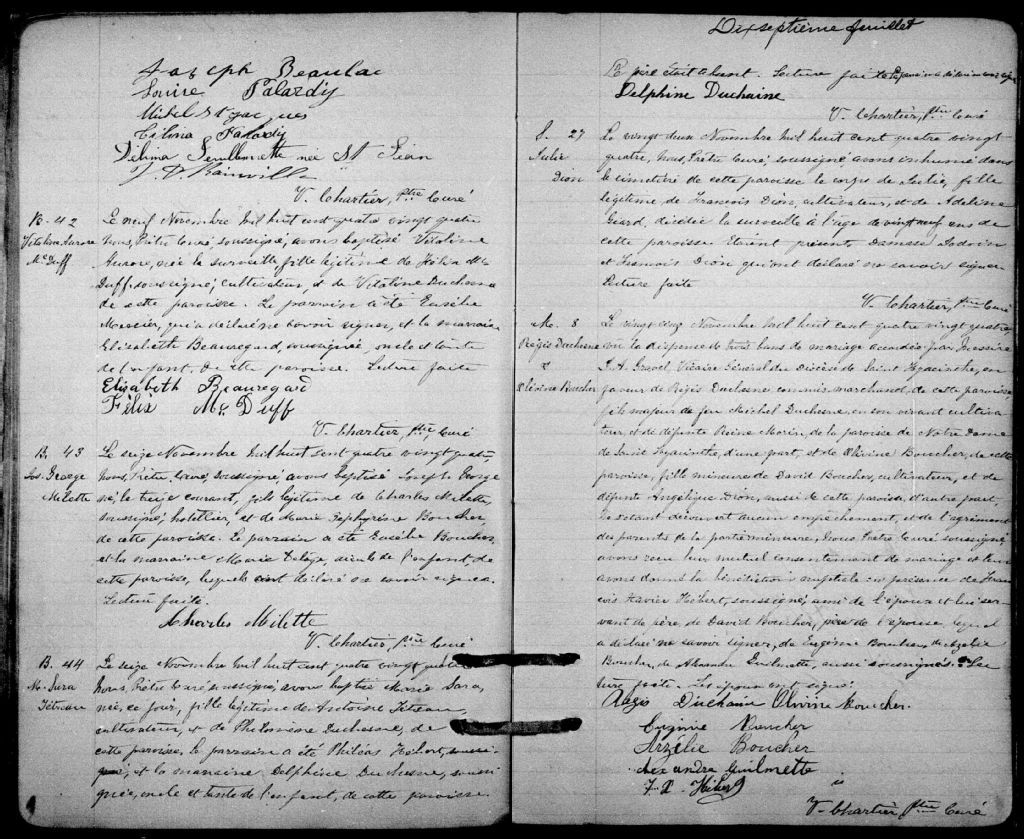 Joseph Beaulac
Louise Palardy
Michel St Jacques
Célina Palardy
Délima Guillmette née St Jean
J. D. Rainville
V. Chartier, Ptre Curé
B. 42
Vitaline Aurore
Mc Duff
Le neuf Novembre mil huit cent quatre vingt quatre
nous, Prêtre Curé, soussigné, avons baptisé Vitaline
Aurore, née la surveille fille légitime de Félix Mc
Duff, soussigné, cultivateur, et de Vitaline Duchesne
de cette paroisse. Le parrain a été Eusèbe
Messier, qui a déclaré ne savoir signer, et la marraine
Elizabeth Beauregard, soussignée, oncle et tante
de l'enfant, de cette paroisse. Lecture faite
Elizabeth Beauregard
Félix Mc Duff
V. Chartier, Ptre, Curé
B. 43
Jos. George
Milette
Le seize Novembre mil huit cent quatre vingt quatre,
nous, Prêtre Curé, soussigné, avons baptisé Joseph George
né le treize courant, fils légitime de Charles Milette,
soussigné, hotellier, et de Marie Zéphyrine Boucher,
de cette paroisse. Le parrain a été Eusèbe Boucher
et la marraine Marie, tante de l'enfant, de
cette paroisse, lesquels ont déclaré ne savoir signer.
Lecture faite.
Charles Milette
V. Chartier, Ptre Curé
B. 44
M. Sara
Tétreau
Le seize Novembre mil huit cent quatre vingt quatre
nous, Prêtre Curé soussigné, avons baptisé Marie Sara,
née, ce jour, fille légitime de Antoine Tétreau,
cultivateur, et de Philomène Duchesne, de
cette paroisse, le parrain a été Philéas Hébert, soussi-
gné, et la marraine Delphine Duchesne, soussi-
gnée, oncle et tante de l'enfant, de cette paroisse.
Dixseptième feuillet
Le père était absent. Lecture faite
Delphine Duchaine
V. Chartier, Ptre Curé
S. 27
Julie
Dion
Le vingt deux Novembre mil huit cent quatre vingt
quatre, nous, Prêtre Curé, soussigné avons inhumé dans
le cimetière de cette paroisse le corps de Julie, fille
légitime de François Dion, cultivateur, et de Adeline
Giard, décédée la surveille à l'âge de vingt neuf ans de
cette paroisse Etaient présents Damase
et François Dion qui ont déclaré ne savoir signer
Lecture faite
V. Chartier, Ptre Curé
M. 8
Régis Duchesne
&
Olivine Boucher
Le vingt cinq Novembre mil huit cent quatre vingt quatre
vu la dispense de trois bans de mariage accordée par Messire
J. A. Gravel Vicaire Général du diocèse de Saint Hyacinthe, en
faveur de Régis Duchesne, commis marchand, de cette paroisse
fils majeur de feu Michel Duchesne, en son vivant cultiva-
teur, et de défunte Reine Morin, de la paroisse de Notre Dame
de Saint Hyacinthe, d'une part, et de Olivine Boucher, de cette
paroisse, fille mineure de David Boucher, cultivateur, et de
défunte Angélique Dion, aussi de cette paroisse, d'autre part,
ne s'étant découvert aucun empêchement, et de l'agrément
des parents de la partie mineure, Nous Prêtre Curé soussigné
avons reçu leur mutuel consentement de mariage et leur
avons donné la bénédiction nuptiale en présence de Fran-
çois Xavier Hébert, soussigné, ami de l'époux et lui ser-
vant de père, de David Boucher, père de l'épouse, lequel
a déclaré ne savoir signer, de Eugénie Boucher, de Azélie
Boucher, de Alexandre Guilmette, aussi soussignés. Lec-
ture faite. Les époux ont signé.
Régis Duchaine Olivine Boucher.
Eugénie Boucher
Arzélie Boucher
Alexandre Guilmette
F. X. Hébert
V. Chartier, Ptre Curé